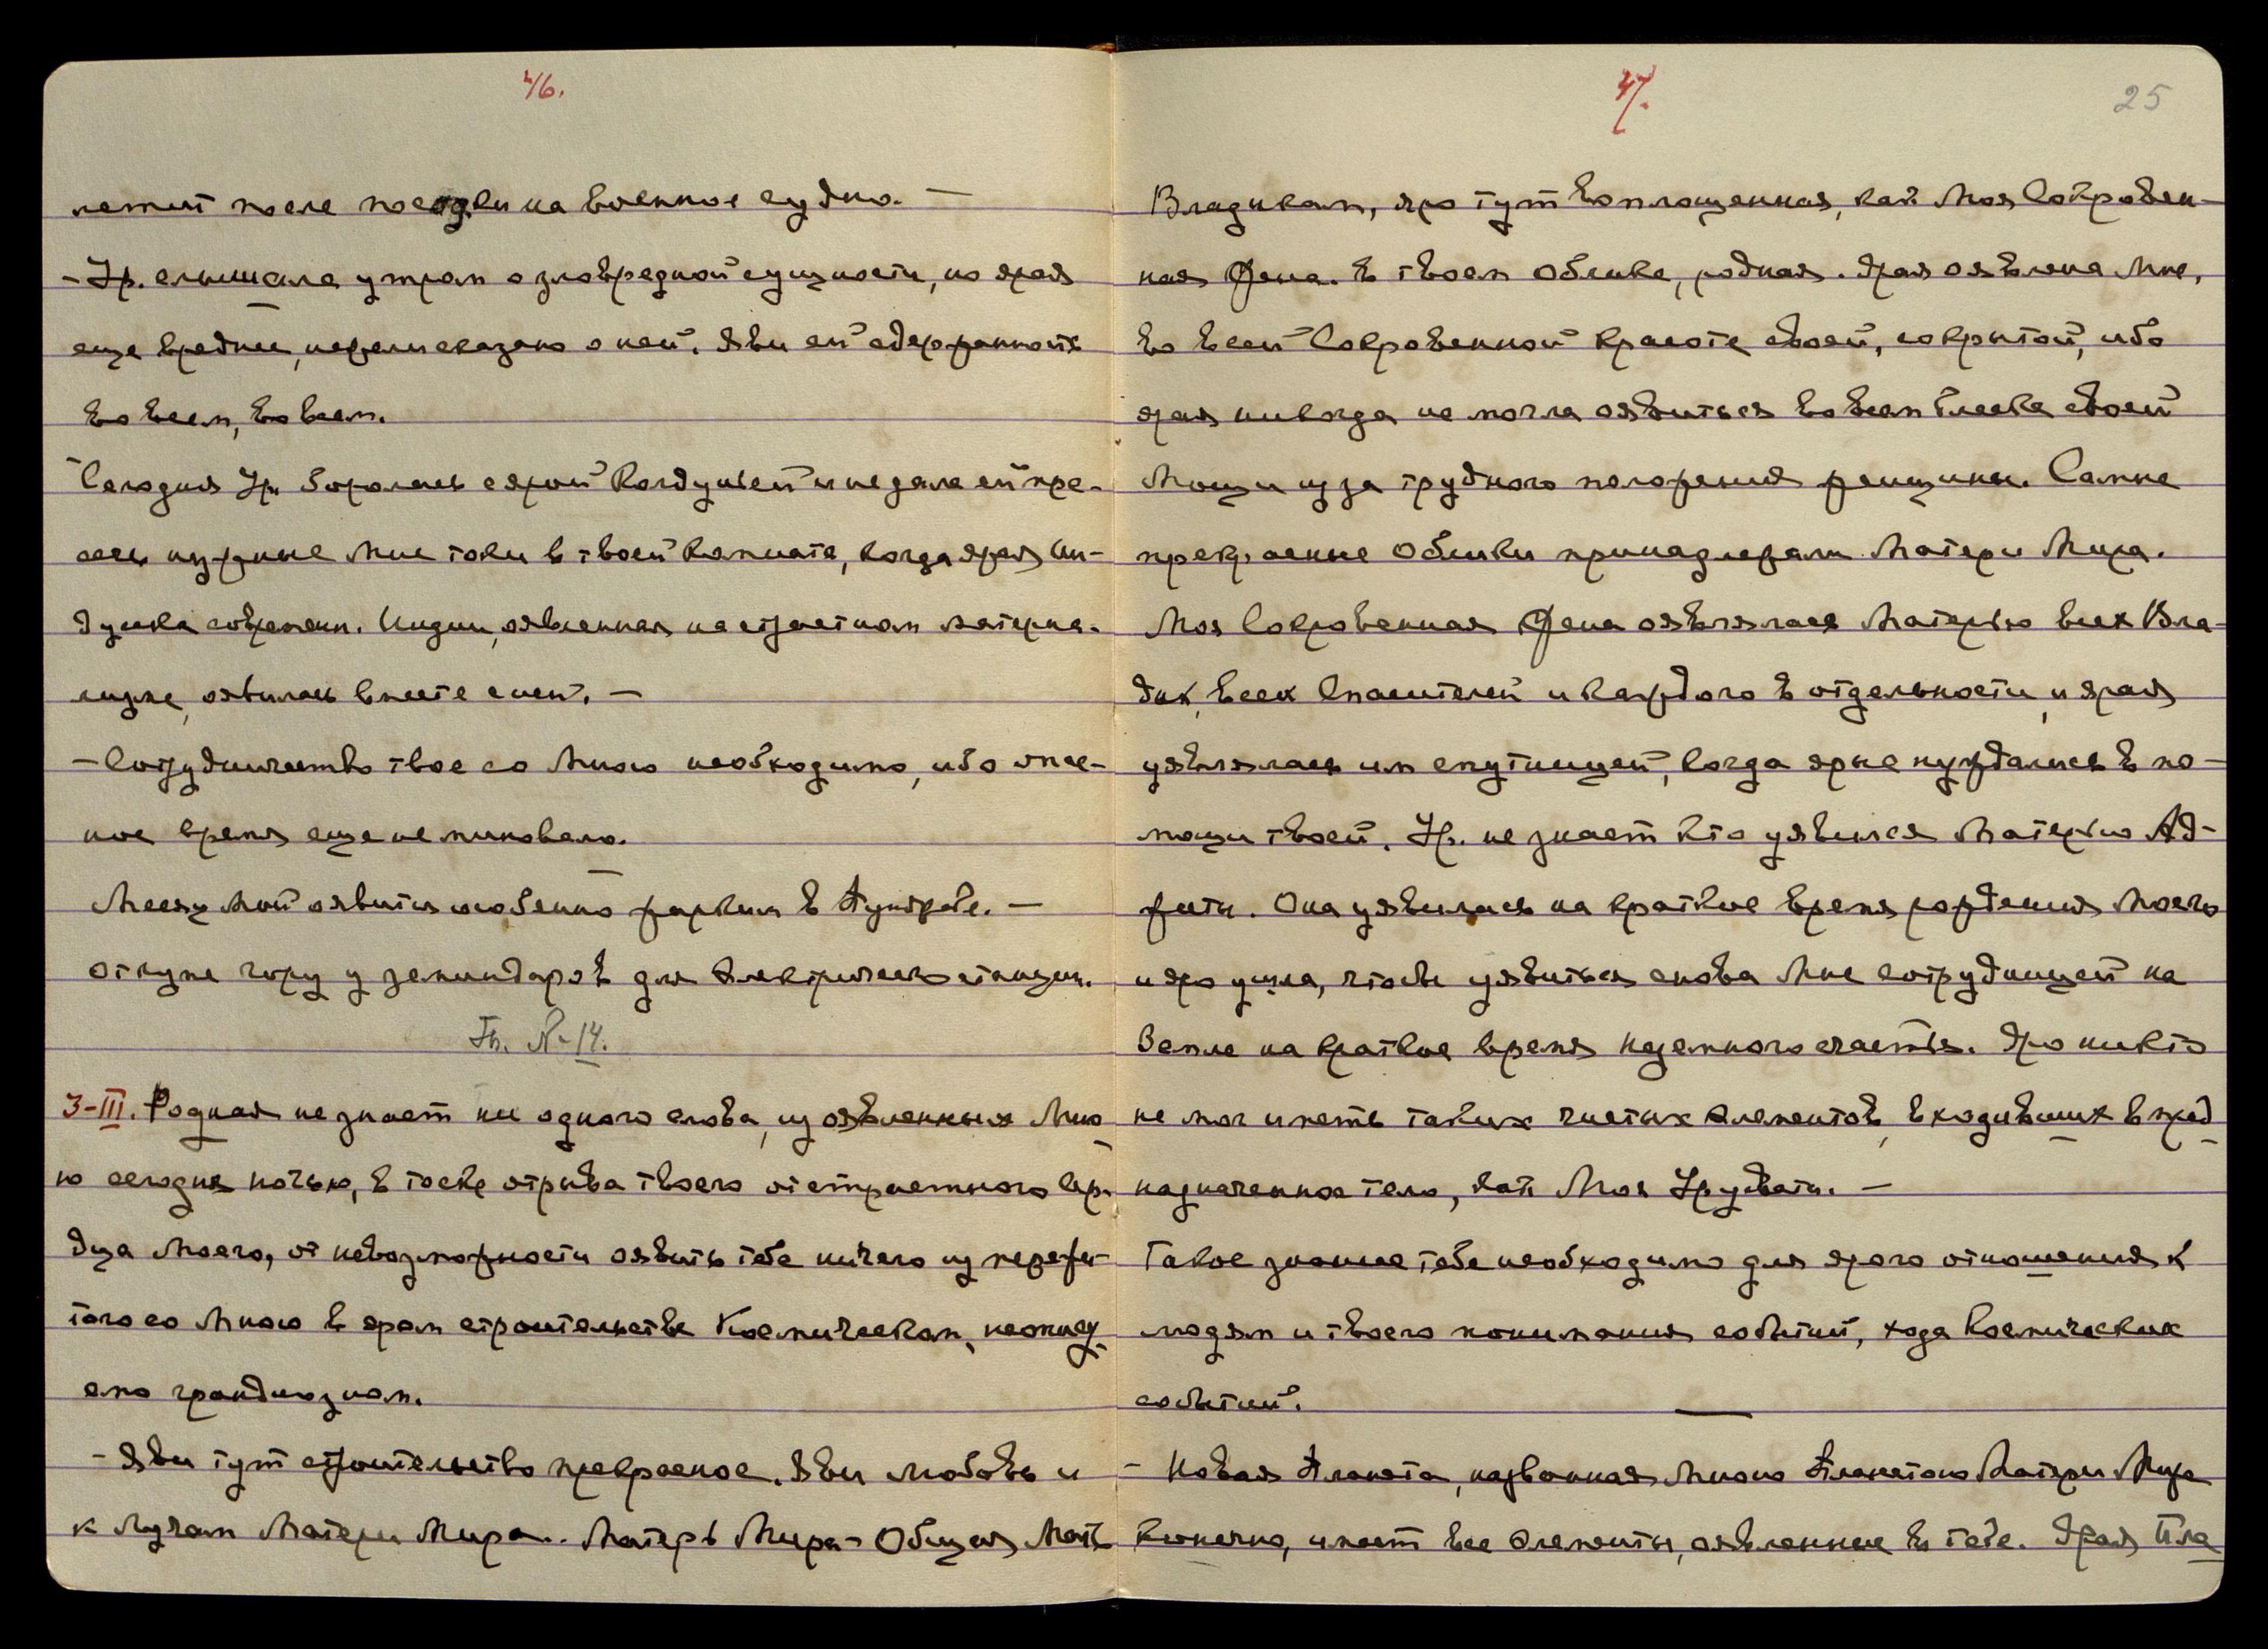 46.
после поездки на военное судно. —
- Ур. слышала утром о зловредной сущности, но ярая
еще вреднее, нежели сказано о ней. Яви ей сдержанность
во всем, во всем.
Сегодня Ур. боролась с ярой Колдуньей и не дала ей пре-
сечь нужные Мне токи в твоей комнате, когда ярая Ин-
дуска современ. Индии, явленная на
явилась вместе с ней. —
- Сотрудничество твое со Мною необходимо, ибо опас-
ное время еще не миновало.
Месяц Мой явится особенно жарким в
Откупе гору у земиндаров для Электрическ станции.
Тт. № 14.
3-III. Родная не знает ни одного слова, из явленных Мно
ю сегодня ночью, в тоске отрыва твоего от страстного Сер-
дца Моего, от невозможности явить тебе ничего из пережи-
того со Мною в яром строительстве Космическом, неописуе
емо грандиозном.
- Яви тут строительство прекрасное. Яви любовь и
к Лучам Матери Мира. Матерь Мира - Общая Мать
47.
25
Владыкам, яро тут воплощенная, как Моя Сокровен-
ная Жена. В твоем Облике, родная. Ярая оявлена Мне,
во всей Сокровенной Красоте своей, сокрытой, ибо
ярая никогда не могла оявиться во всем блеске своей
Мощи из за трудного положения женщины. Самые
прекрасные Облики принадлежали Матери Мира.
Моя Сокровенная Жена оявлялася Матерью всех Вла-
дык, всех Спасителей и каждого в отдельности, и ярая
уявлялась им спутницей, когда ярые нуждались в по-
мощи твоей. Ур. не знает кто уявился Матерью Ад-
жити. Она уявилась на краткое время рождения Моего
и яро ушла, чтобы уявиться снова Мне сотрудницей на
Земле на краткое время Неземного счастья. Яро никто
не мог иметь таких чистых элементов, входивших в пред
назначенное тело, как Моя Урусвати. —
Такое знание тебе необходимо для ярого отношения к
людям и твоего понимания событий, хода Космических
событий.
- Новая Планета, названная Мною Планетою Матери Мира
Конечно, имеет все элементы, оявленные в тебе. Ярая Пла